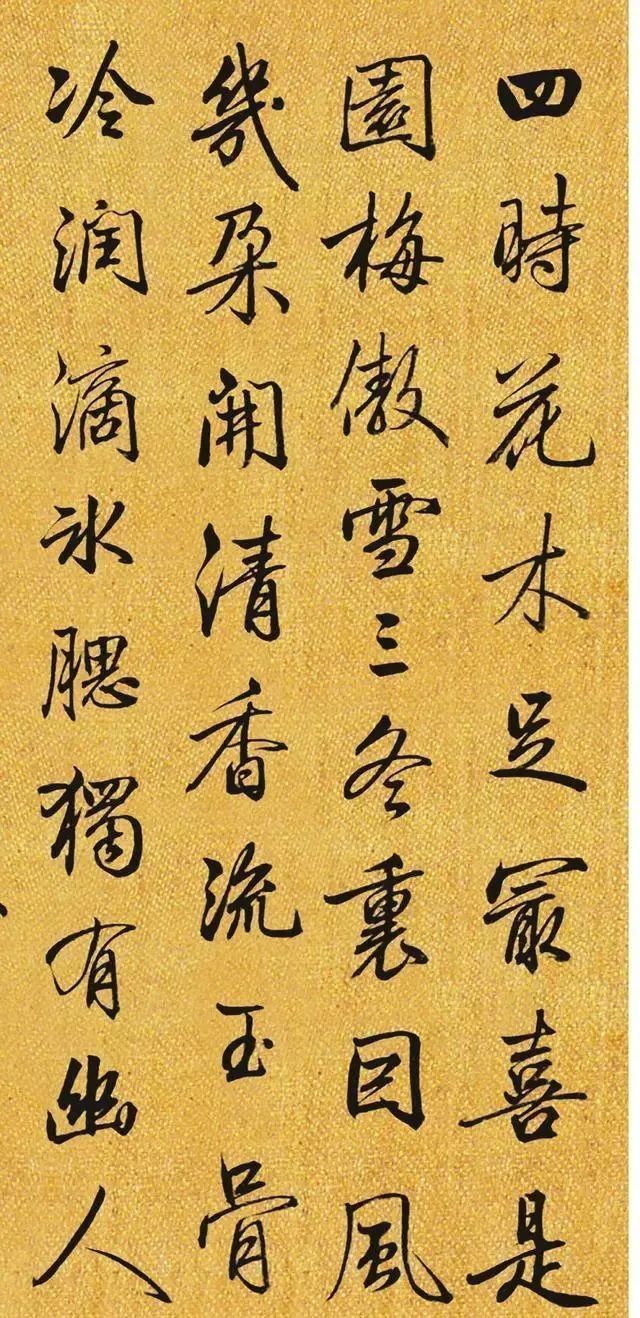 四時花木足冣喜是
園梅傲雪三冬裏因風
幾朶開清香流玉骨
冷润滴氷腮獨有幽人